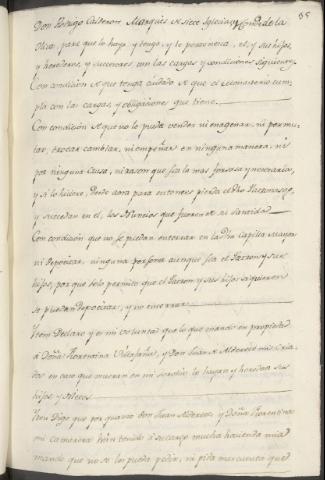 55
Don Rodrigo Calderon Marqués de siete Iglesias, y Conde de la
Oliva, para que lo haya, y tenga, y le pertenezca, el, y sus hijos,
y herederos, y sucesores, con las cargas, y condiciones siguientes
Con condicion de que tenga cuidado de que el monasterio cum-
pla con las cargas, y obligaciones que tiene.
Con condicion de que no lo pueda vender ni enagenar, ni permu-
tar, trocar cambiar, ni empeñar en ninguna manera, ni
por ninguna causa, ni razon que sea la mas forzosa y necesaria,
y si lo hiciere, desde aora para entonces pierda el dho Patronazgo,
y sucedan en el, los Nuncios que fueren de su Santidad
Con condicion que no se puedan enterrar en la dha Capilla Mayor
ni depositar, ninguna persona aunque sea el Patron y sus
hijos, por que solo permito que el Patron y sus hijos si quisieren
se puedan depositar, y no enterrar.
Yten Declaro y es mi voluntad que lo que mando en propiedad
á Doña Florentina Villafañe, y Don Juan de Alderete mis Cria-
dos en caso que mueran en mi servicio lo hayan y hereden sus
hijos y Nietos
Yten Digo que por quanto Don Juan Alderete, y Doña Florentina
mi camarera han tenido á su cargo mucha hacienda mia
mando que no se les pueda pedir, ni pida mas cuenta que